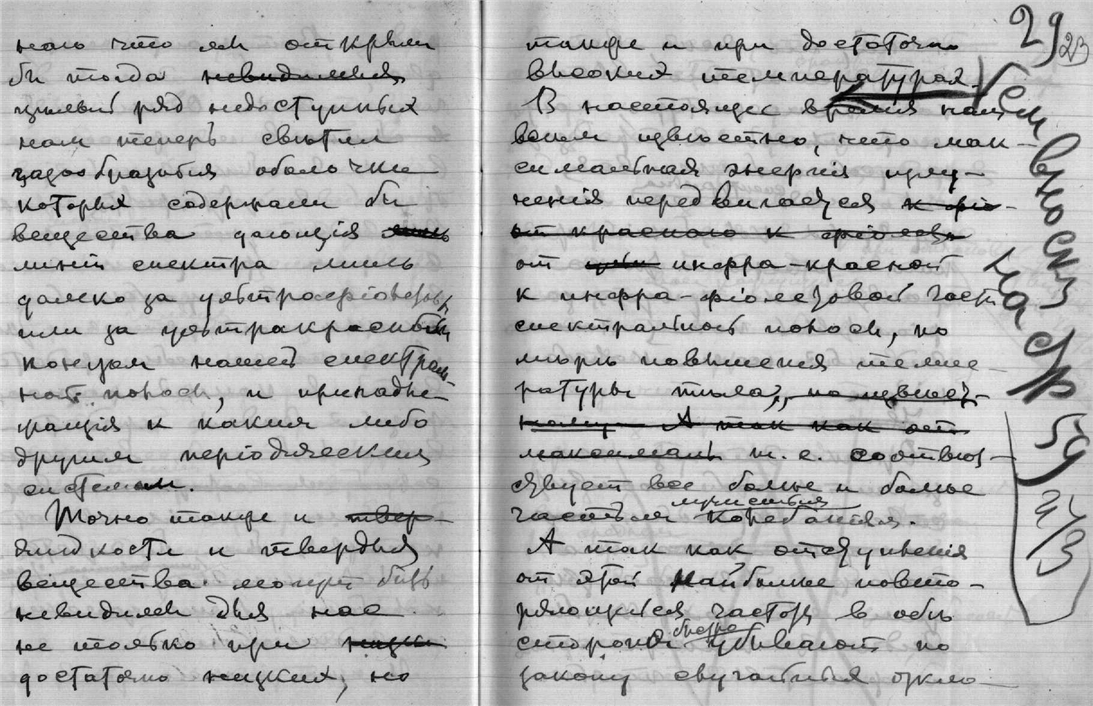 нами что мы открыли
бы тогда невидимыя
целый ряд недоступных
нам теперь светил
газообразныя оболочки
которыя содержали бы
вещества дающiя лишь
линiи спектра лишь
далеко за ультрафiолетовым
или за ультракрасным
концом нашей спектраль-
ной полосы, и принадле-
жащiя к каким либо
другим перiодическим
системам.
Точно также и твер-
жидкости и твердыя
вещества могут быть
невидимы для нас
не только при низки
достаточно низких, но
также и при достаточно
высоких температурах
В настоящее время нам
всем известно, что мак-
симальная энергия излу-
ченiя передвигается к фiо-
от красного к фiолетов
от инфра-красной
к инфра-фiолетовой части
спектральной полосы, по
мере повышенiя темпе-
ратуры тела, по извест-
ному А так как от
максимали т. е. соответ-
ствует все более и более
частым лучистыя колебанiям.
А так как отступленiя
от этой наиболее повто-
ряющейся частоты в обе
стороны быстро убывают по
закону случайных откло-
29
23
См выноску
на стр 59